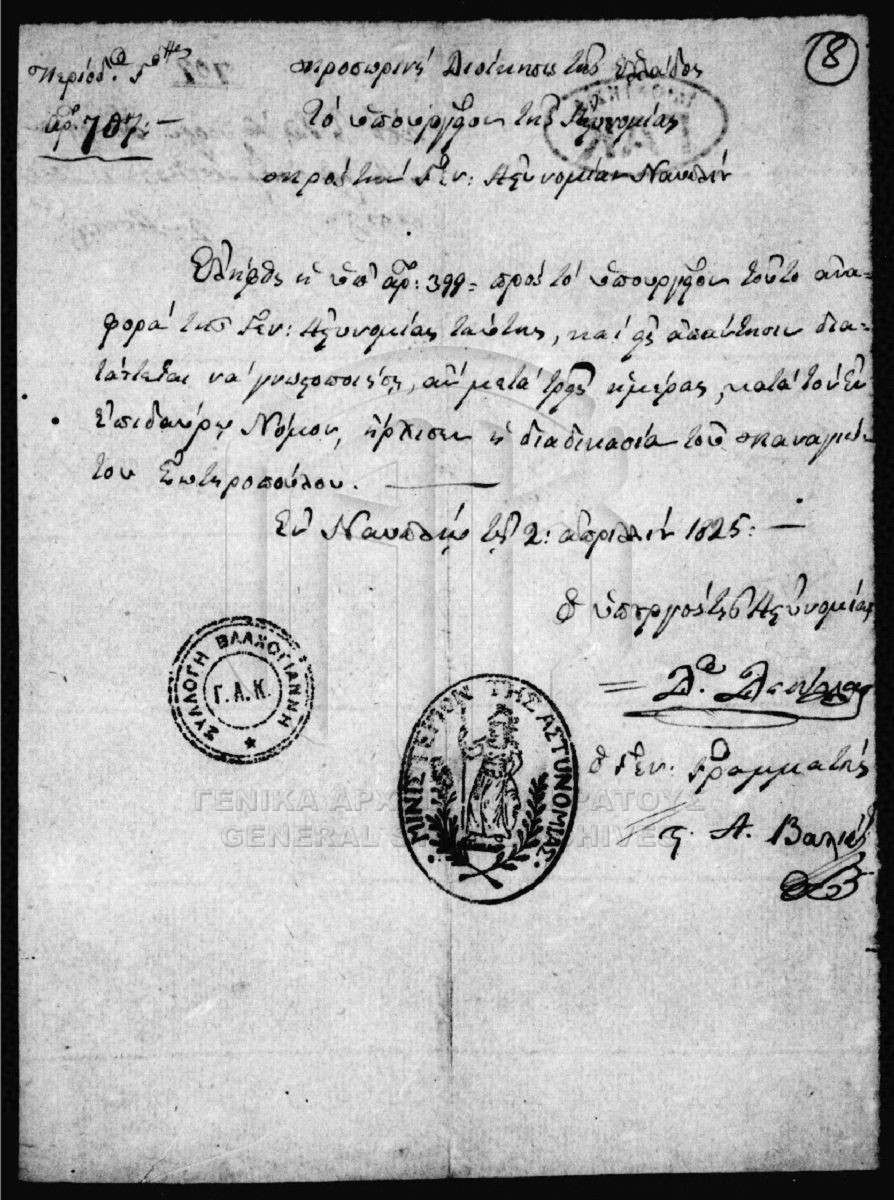 8
Περίοδ. Γ.της
ἀρ. 707:
Προσωρινή Διοίκησις τῆς Ἑλλάδος
Τό ὑπουργεῖον τῆς Ἀστυνομίας
πρός τήν Γεν: Ἀστυνομίαν Ναυπλίου
Ἐλήφθη ἡ ὑπ' ἀρ: 399= πρός τό ὑπουργεῖον τοῦτο ἀνα-
φορά τῆς Γεν: Ἀστυνομίας ταύτης, καί εἰς ἀπάντησιν δια-
τάττεται νά γνωστοποιήσῃ, ἄν μετά τρεῖς ἡμέρας, κατά τόν ἐν
Ἐπιδαύρῳ Νόμον, ἤρχισεν ἡ διαδικασία τοῦ Παναγιώ-
του Σωτηροπούλου.
Ἐν Ναυπλίῳ τῇ 2: ἀπριλλίου 1825:
Ὁ ὑπουργός τῆς Ἀστυνομίας
Ὁ Γεν. Γραμματεύς
ΣΥΛΛΟΓΗ ΒΛΑΧΟΓΙΑΝΝΗ
Γ.Α.Κ.
ΜΙΝΙΣΤΕΡΙΟΝ ΤΗΣ ΑΣΤΥΝΟΜΙΑΣ
ΓΕΝΙΚΑ ΑΡΧΕΙΑ ΤΟΥ ΚΡΑΤΟΥΣ
GENERAL STATE ARCHIVES